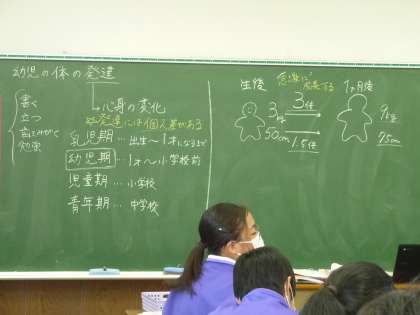 幼児の体の発達
書く
立つ
勉強
心身の変化
発達には個人差がある
乳児期…出生〜1才になるまで
幼児期…1才〜小学校前
児童期…小学校
青年期…中学校
生後
急激に発達する
3kg
50cm
3倍
1.5倍
9kg
75cm